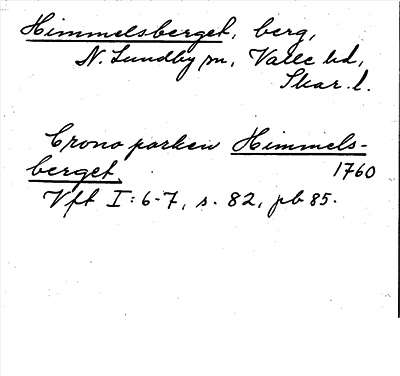 Himmelsberget, berg,
N. Lundby sn, Valle hd,
Skar. l.
Crono parken Himmels-
berget 1760
Vft I: 6-7, s. 82, pb 85.